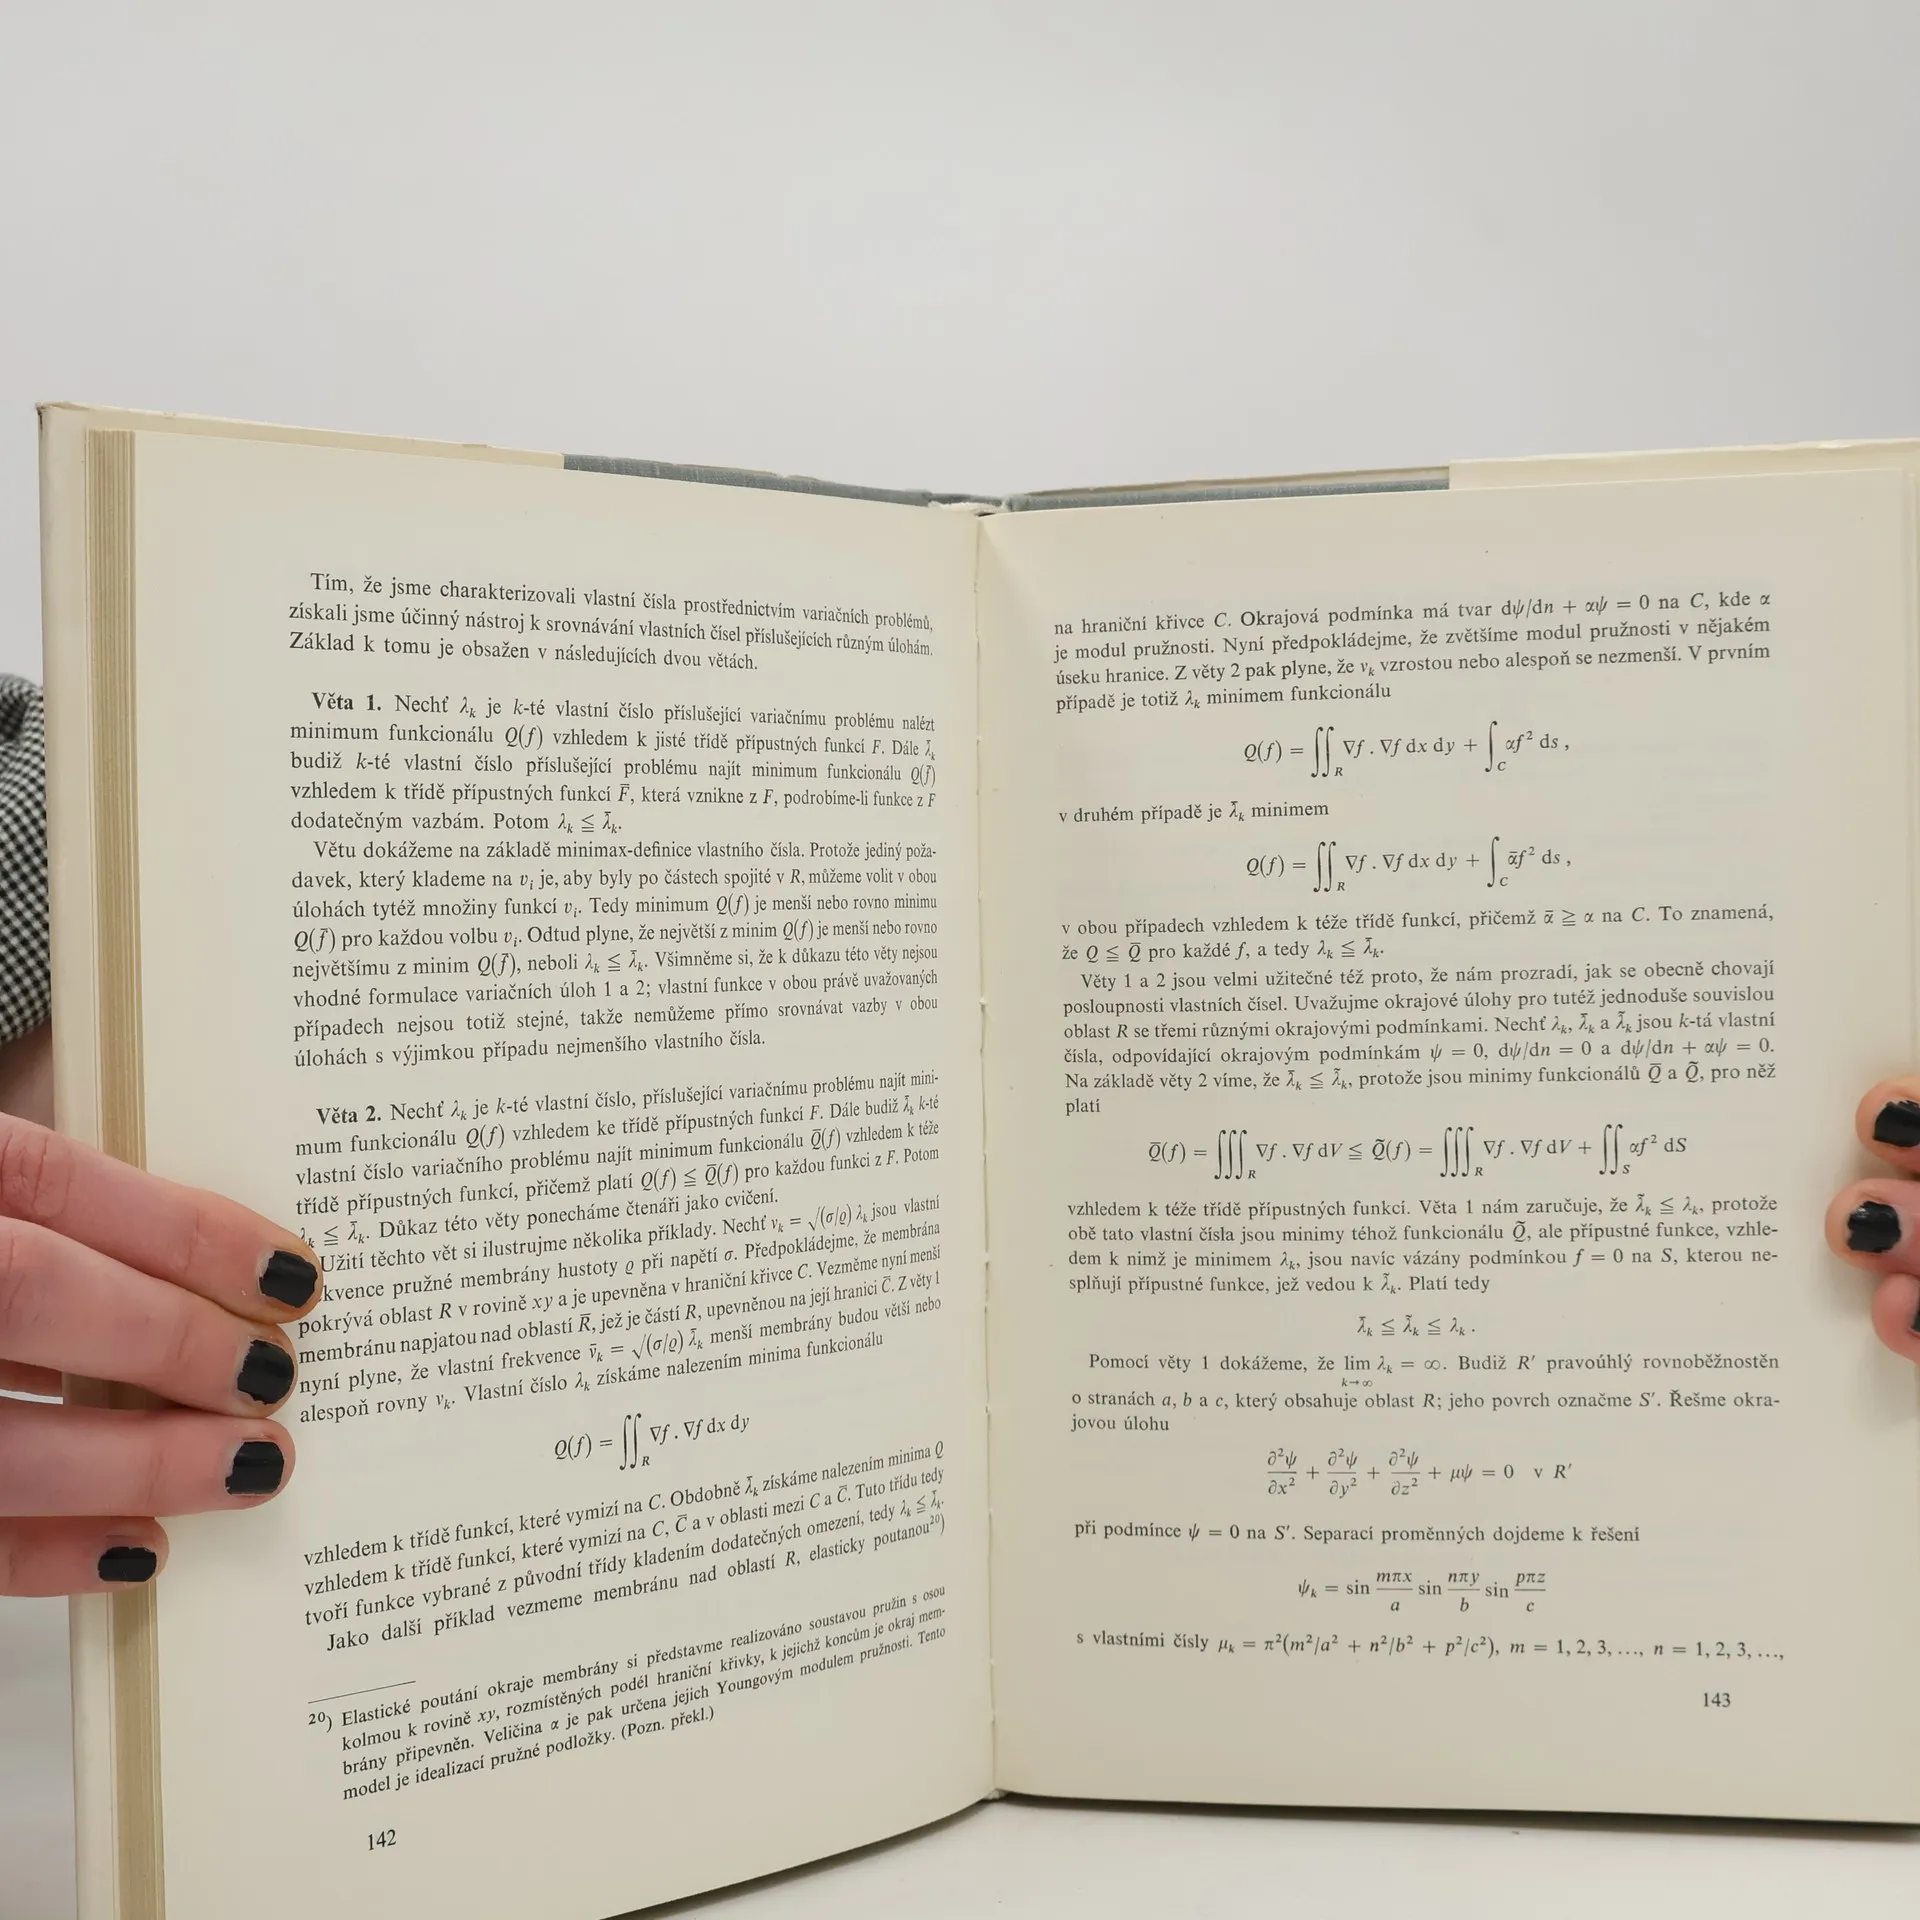 Tím, že jsme charakterizovali vlastní čísla prostřednictvím variačních problémů,
získali jsme účinný nástroj k srovnávání vlastních čísel příslušejících různým úlohám.
Základ k tomu je obsažen v následujících dvou větách.
Věta 1. Nechť λₖ je k-té vlastní číslo příslušející variačnímu problému nalézt
minimum funkcionálu Q(f) vzhledem k jisté třídě přípustných funkcí F. Dále λ̄ₖ
budiž k-té vlastní číslo příslušející problému najít minimum funkcionálu Q(f̄)
vzhledem k třídě přípustných funkcí F̄, která vznikne z F, podrobíme-li funkce z F
dodatečným vazbám. Potom λₖ ≦ λ̄ₖ.
Větu dokážeme na základě minimax-definice vlastního čísla. Protože jediný poža-
davek, který klademe na vᵢ je, aby byly po částech spojité v R, můžeme volit v obou
úlohách tytéž množiny funkcí vᵢ. Tedy minimum Q(f) je menší nebo rovno minimu
Q(f̄) pro každou volbu vᵢ. Odtud plyne, že největší z minim Q(f) je menší nebo rovno
největšímu z minim Q(f̄), neboli λₖ ≦ λ̄ₖ. Všimněme si, že k důkazu této věty nejsou
vhodné formulace variačních úloh 1 a 2; vlastní funkce v obou právě uvažovaných
případech nejsou totiž stejné, takže nemůžeme přímo srovnávat vazby v obou
úlohách s výjimkou případu nejmenšího vlastního čísla.
Věta 2. Nechť λₖ je k-té vlastní číslo, příslušející variačnímu problému najít mini-
mum funkcionálu Q(f) vzhledem ke třídě přípustných funkcí F. Dále budiž λ̄ₖ k-té
vlastní číslo variačního problému najít minimum funkcionálu Q̄(f) vzhledem k téže
třídě přípustných funkcí, přičemž platí Q(f) ≦ Q̄(f) pro každou funkci z F. Potom
λₖ ≦ λ̄ₖ. Důkaz této věty ponecháme čtenáři jako cvičení.
Užití těchto vět si ilustrujme několika příklady. Nechť νₖ = √(σ/ϱ) λₖ jsou vlastní
kvence pružné membrány hustoty ϱ při napětí σ. Předpokládejme, že membrána
pokrývá oblast R v rovině xy a je upevněna v hraniční křivce C. Vezměme nyní menší
membránu napjatou nad oblastí R̄, jež je částí R, upevněnou na její hranici C̄. Z věty 1
nyní plyne, že vlastní frekvence ν̄ₖ = √(σ/ϱ) λ̄ₖ menší membrány budou větší nebo
alespoň rovny νₖ. Vlastní číslo λₖ získáme nalezením minima funkcionálu
Q(f) = ∬_R ∇f . ∇f dx dy
vzhledem k třídě funkcí, které vymizí na C. Obdobně λ̄ₖ získáme nalezením minima Q
vzhledem k třídě funkcí, které vymizí na C, C̄ a v oblasti mezi C a C̄. Tuto třídu tedy
tvoří funkce vybrané z původní třídy kladením dodatečných omezení, tedy λₖ ≦ λ̄ₖ.
Jako další příklad vezmeme membránu nad oblastí R, elasticky poutanou²⁰)
²⁰) Elastické poutání okraje membrány si představme realizováno soustavou pružin s osou
kolmou k rovině xy, rozmístěných podél hraniční křivky, k jejichž koncům je okraj mem-
brány připevněn. Veličina α je pak určena jejich Youngovým modulem pružnosti. Tento
model je idealizací pružné podložky. (Pozn. překl.)
142
na hraniční křivce C. Okrajová podmínka má tvar dψ/dn + αψ = 0 na C, kde α
je modul pružnosti. Nyní předpokládejme, že zvětšíme modul pružnosti v nějakém
úseku hranice. Z věty 2 pak plyne, že νₖ vzrostou nebo alespoň se nezmenší. V prvním
případě je totiž λₖ minimem funkcionálu
Q(f) = ∬_R ∇f . ∇f dx dy + ∫_C αf² ds ,
v druhém případě je λ̄ₖ minimem
Q(f) = ∬_R ∇f . ∇f dx dy + ∫_C ᾱf² ds ,
v obou případech vzhledem k téže třídě funkcí, přičemž ᾱ ≧ α na C. To znamená,
že Q ≦ Q̄ pro každé f, a tedy λₖ ≦ λ̄ₖ.
Věty 1 a 2 jsou velmi užitečné též proto, že nám prozradí, jak se obecně chovají
posloupnosti vlastních čísel. Uvažujme okrajové úlohy pro tutéž jednoduše souvislou
oblast R se třemi různými okrajovými podmínkami. Nechť λₖ, λ̄ₖ a λ̃ₖ jsou k-tá vlastní
čísla, odpovídající okrajovým podmínkám ψ = 0, dψ/dn = 0 a dψ/dn + αψ = 0.
Na základě věty 2 víme, že λ̄ₖ ≦ λ̃ₖ, protože jsou minimy funkcionálů Q̄ a Q̃, pro něž
platí
Q̄(f) = ∭_R ∇f . ∇f dV ≦ Q̃(f) = ∭_R ∇f . ∇f dV + ∬_S αf² dS
vzhledem k téže třídě přípustných funkcí. Věta 1 nám zaručuje, že λ̃ₖ ≦ λₖ, protože
obě tato vlastní čísla jsou minimy téhož funkcionálu Q̃, ale přípustné funkce, vzhle-
dem k nimž je minimem λₖ, jsou navíc vázány podmínkou f = 0 na S, kterou ne-
splňují přípustné funkce, jež vedou k λ̃ₖ. Platí tedy
λ̄ₖ ≦ λ̃ₖ ≦ λₖ .
Pomocí věty 1 dokážeme, že lim_{k→∞} λₖ = ∞. Budiž R′ pravoúhlý rovnoběžnostěn
o stranách a, b a c, který obsahuje oblast R; jeho povrch označme S′. Řešme okra-
jovou úlohu
∂²ψ/∂x² + ∂²ψ/∂y² + ∂²ψ/∂z² + μψ = 0 v R′
při podmínce ψ = 0 na S′. Separací proměnných dojdeme k řešení
ψₖ = sin mπx/a sin nπy/b sin pπz/c
s vlastními čísly μₖ = π²(m²/a² + n²/b² + p²/c²), m = 1, 2, 3, ..., n = 1, 2, 3, ...,
143